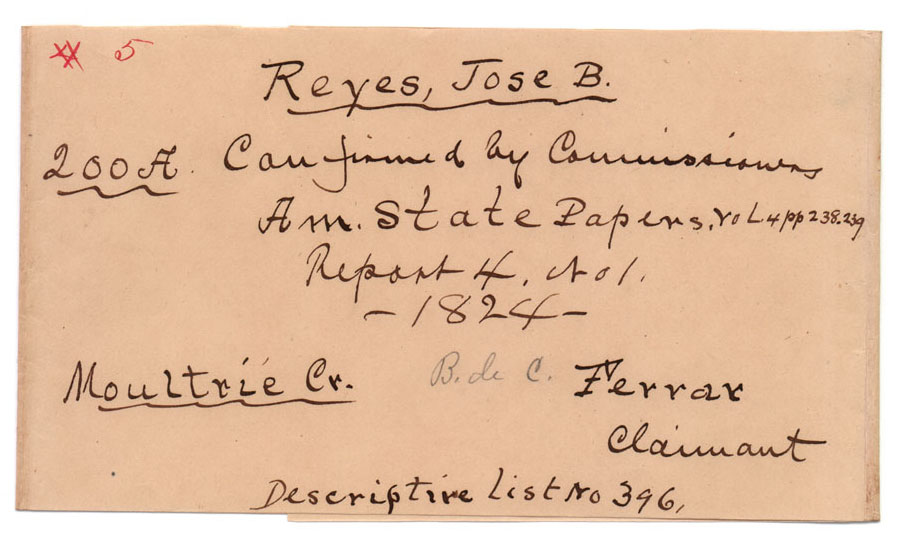 5
Reyes, Jose B.
200 A. Confirmed by Commissioners
Am. State Papers, Vol. 4 pp 238-239
Report 4, No 1.
- 1824 -
Moultrie Cr. B. de C. Ferrar
Claimant
Descriptive List No 396,